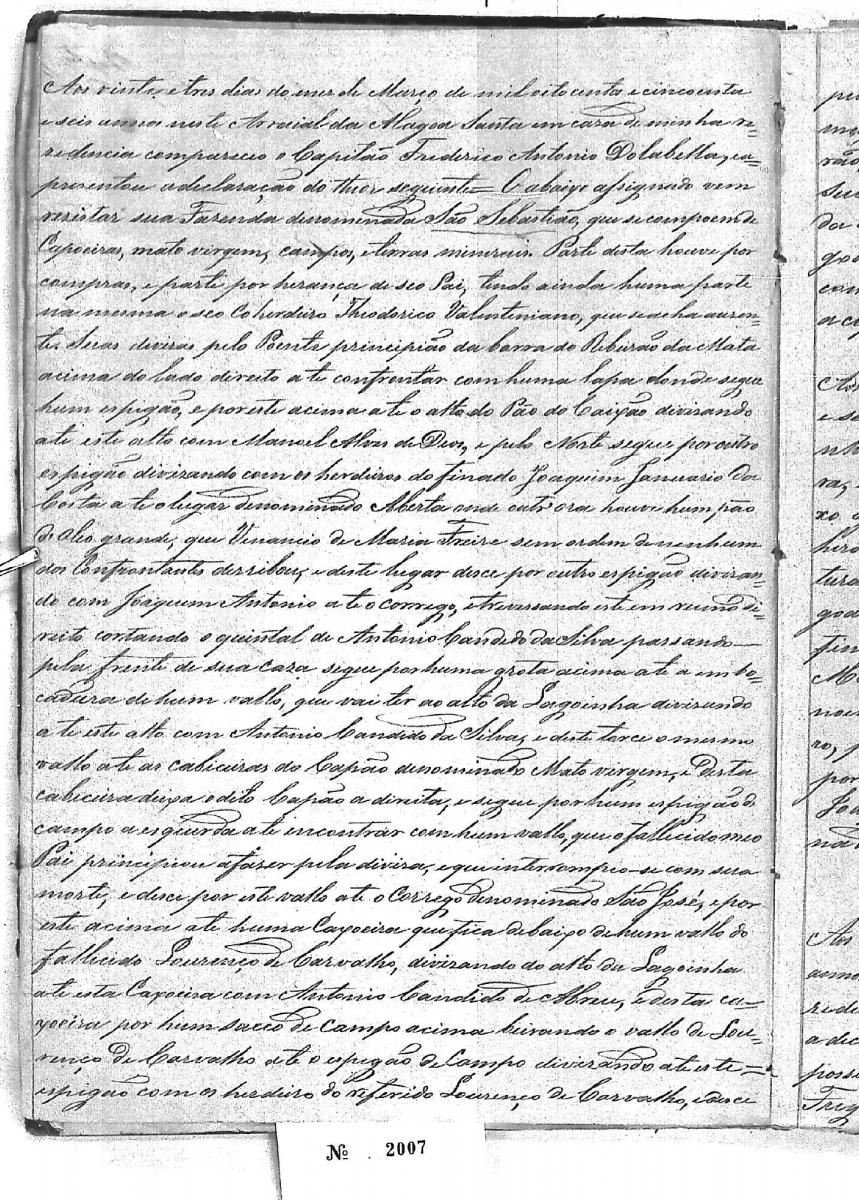 Aos vinte e tres dias do mez de Março de mil oito centos e cincoenta
e seis annos neste Arraial da Alagoa Santa em caza de minha re-
zidencia compareceo o Capitão Frederico Antonio Dolabella, e a-
prezentou a declaração do theor seguinte = O abaixo assignado vem
rezistar sua Fazenda denominada São Sebastião, que se compoem de
Capoeiras, mato virgem, campos, e terras mineraes. Parte desta houve por
compras, e parte por herança de seo Pai, tendo ainda huma parte
na mesma o seo Coherdeiro Theodorico Valenteniano, que se acha auzen-
te. Suas divizas pelo Poente principião da barra do Ribeirão da Mata
acima do lado direito ate confrontar com huma lapa donde segue
hum espigão, e por este acima ate o alto do Pão do Caixão divizando
ate este alto com Manoel Alves de Deos, e pelo Norte segue por outro
espigão divizando com os herdeiros do finado Joaquim Januario da
Costa ate o lugar denominado Aberta onde outr'ora houve hum páo
de oleo grande, que Venancio de Maria Freire sem ordem de nenhum
dos Confrontantes derribou, e deste lugar desce por outro espigão divizan-
do com Joaquim Antonio ate o corrego, atravessando este em rumo di-
reito cortando o quintal de Antonio Candido da Silva passando
pela frente de sua caza segue por huma grota acima ate a embo-
cadura de hum vallo, que vai ter ao alto da Lagoinha divizando
ate este alto com Antonio Candido da Silva, e deste torce o mesmo
vallo ate as cabiceiras do Capão denominado Mato virgem, e desta
cabiceira deixa o dito Capão a direita, e segue por hum espigão de
campo a esquerda ate encontrar com hum vallo, que o fallecido meo
Pai principiou a fazer pela diviza, e que interrompeo-se com sua
morte, e desce por este vallo ate o Corrego denominado São José, e por
este acima ate huma Capoeira que fica debaixo de hum vallo do
fallecido Lourenço de Carvalho, divizando do alto da Lagoinha
ate esta Capoeira com Antonio Candido de Abreu, e desta ca-
poeira por hum sacco de campo acima beirando o vallo de Lou-
renço de Carvalho ate o espigão de Campo divizando ate este
espigão com os herdeiro do referido Lourenço de Carvalho, e desce
Nº 2007